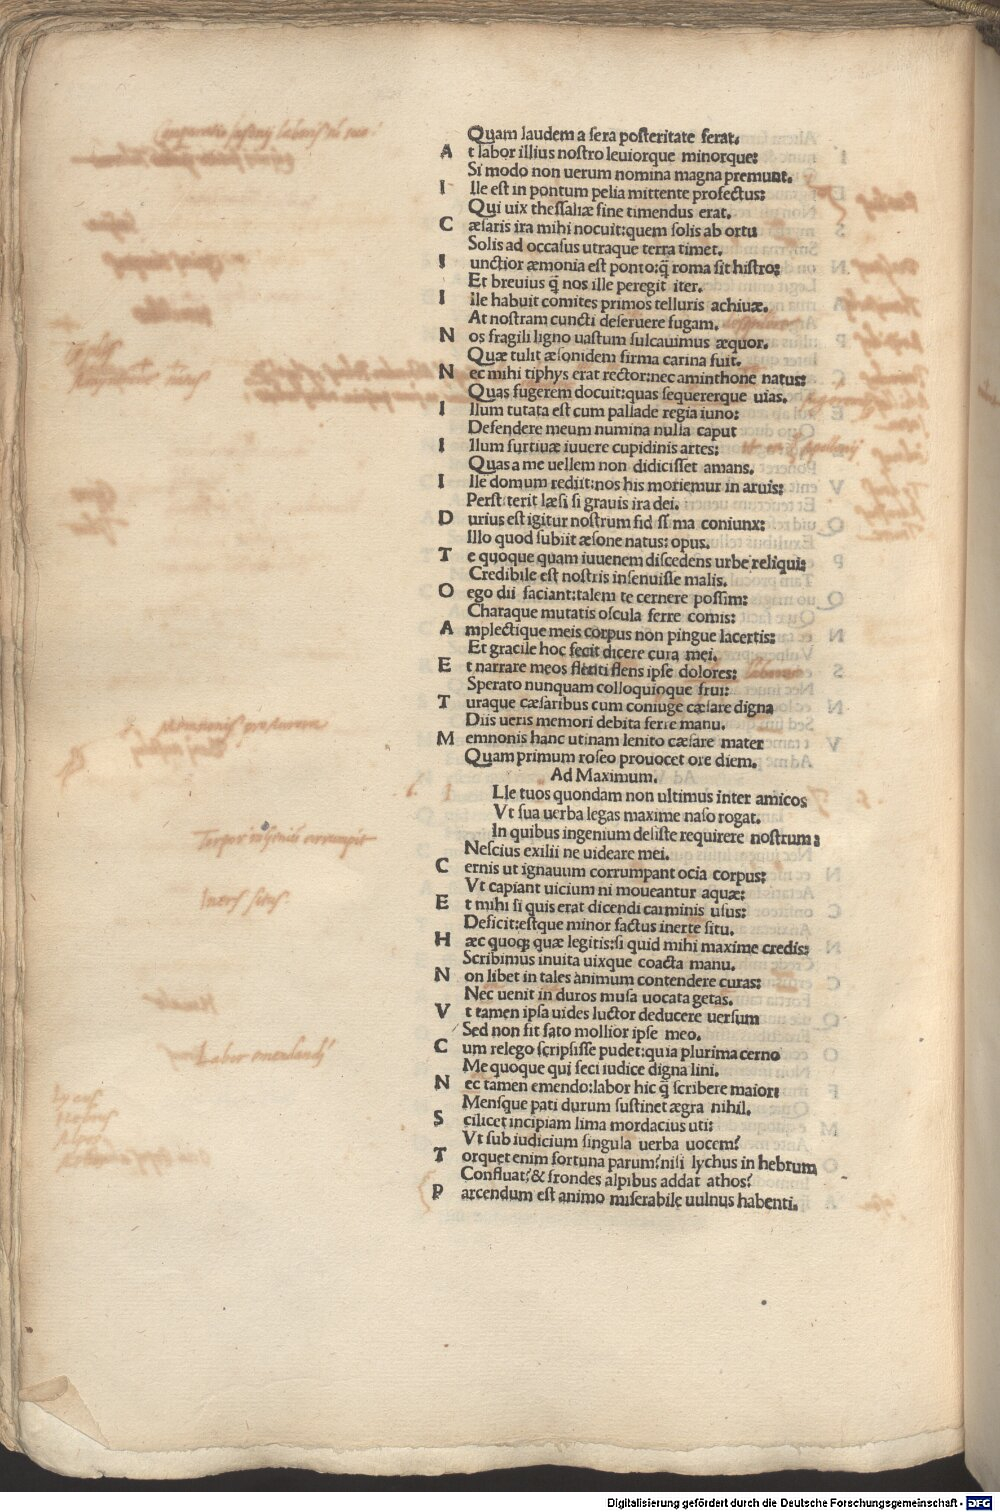 Quam laudem a sera posteritate ferat.
A t labor illius nostro leuiorque minorque:
Si modo non uerum nomina magna premunt.
I lle est in pontum pelia mittente profectus:
Qui uix thessaliæ fine timendus erat.
C æsaris ira mihi nocuit: quem solis ab ortu
Solis ad occasus utraque terra timet.
I unctior æmonia est ponto: q̃ roma sit histro:
Et breuius q̃ nos ille peregit iter.
I lle habuit comites primos telluris achiuæ.
At nostram cuncti deseruere fugam.
N os fragili ligno uastum sulcauimus æquor.
Quæ tulit æsonidem firma carina fuit.
N ec mihi tiphys erat rector: nec aminthone natus:
Quas fugerem docuit: quas sequererque uias.
I llum tutata est cum pallade regia iuno:
Defendere meum numina nulla caput
I llum furtiuæ iuuere cupidinis artes:
Quas a me uellem non didicisset amans.
I lle domum rediit: nos his moriemur in aruis:
Perst terit læsi si grauis ira dei.
D urius est igitur nostrum fid ss ma coniunx:
Illo quod subiit æsone natus: opus.
T e quoque quam iuuenem discedens urbe reliqui:
Credibile est nostris insenuisse malis.
O ego dii faciant: talem te cernere possim:
Charaque mutatis oscula ferre comis:
A mplectique meis corpus non pingue lacertis:
Et gracile hoc fecit dicere cura mei.
E t narrare meos flenti flens ipse dolores:
Sperato nunquam colloquioque frui:
T uraque cæsaribus cum coniuge cæsare digna
Diis ueris memori debita ferre manu.
M emnonis hanc utinam lenito cæsare mater
Quam primum roseo prouocet ore diem.
Ad Maximum.
Lle tuos quondam non ultimus inter amicos
Vt sua uerba legas maxime naso rogat.
In quibus ingenium desiste requirere nostrum:
Nescius exilii ne uideare mei.
C ernis ut ignauum corrumpant ocia corpus:
Vt capiant uicium ni moueantur aquæ:
E t mihi si quis erat dicendi carminis usus:
Deficit: estque minor factus inerte situ.
H æc quoq; quæ legitis: si quid mihi maxime credis:
Scribimus inuita uixque coacta manu.
N on libet in tales animum contendere curas:
Nec uenit in duros musa uocata getas.
V t tamen ipsa uides luctor deducere uersum
Sed non fit fato mollior ipse meo.
C um relego scripsisse pudet: quia plurima cerno
Me quoque qui feci iudice digna lini.
N ec tamen emendo: labor hic q̃ scribere maior:
Mensque pati durum sustinet ægra nihil.
S cilicet incipiam lima mordacius uti:
Vt sub iudicium singula uerba uocem?
T orquet enim fortuna parum? nisi lychus in hebrum
Confluat? & frondes alpibus addat athos?
P arcendum est animo miserabile uulnus habenti.
Iners situs
Labor emendandi
Digitalisierung gefördert durch die Deutsche Forschungsgemeinschaft - DFG